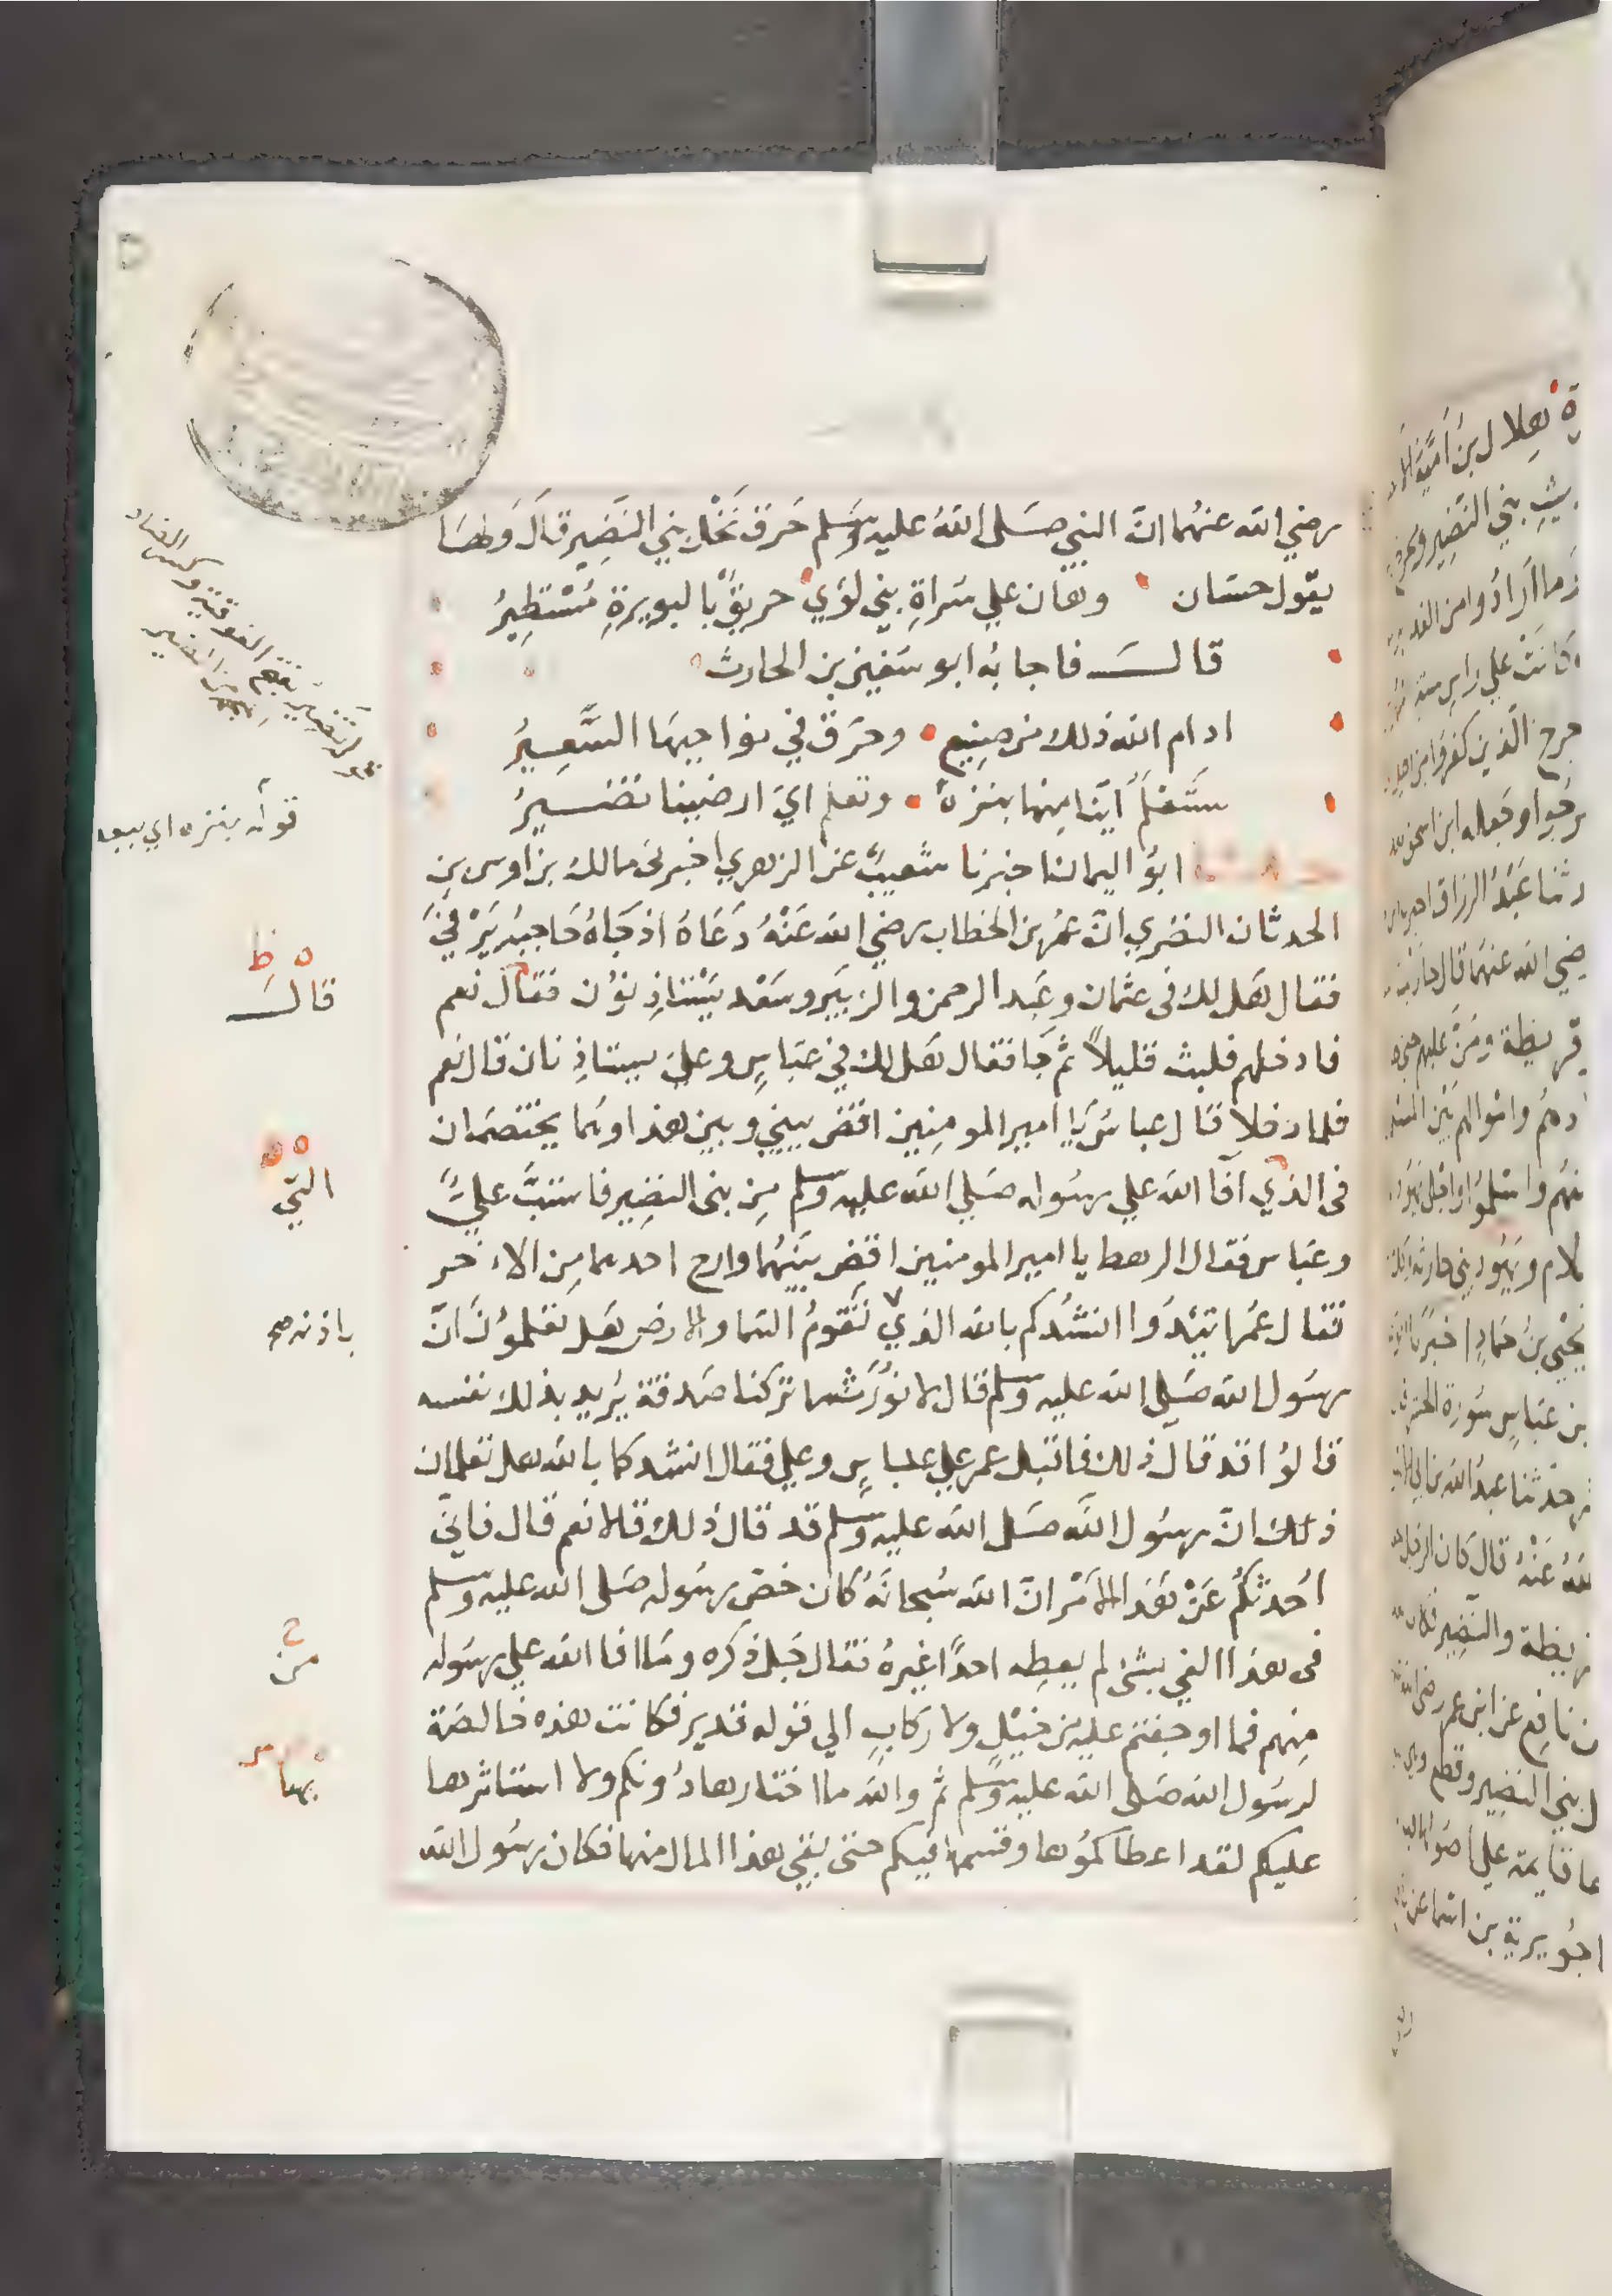 رضي الله عنهما انّ النبي صَلى اللهُ عليه وسَلم حَرق نَخْل بني النَضِير قالَ وَلهَا
يقول حسّان وهان علي سَراةِ بني لؤي حريقٌ بالبويرةِ مُسْتَطِيرُ
قالَ فاجابهُ ابو سَفين بن الحارث
ادام الله ذلك من صنِيع وحَرق في نواحيهَا السَّعِيرُ
ستَعْلَمُ أيّنا منها بنزهٍ وتعلم ايَ ارضينا تضيرُ
حدثنا ابوُ اليمان اخبرنا شعيبٌ عن الزهري اخبرني مالك بن اوس بن
الحدثان النضري انّ عُمر بن الخطاب رضي الله عَنْهُ دَعَاهُ اذ جَاهُ حَاجبُه يَرْفيَ
فقال هَل لك في عثمان وعَبد الرحمن والزبَير وسَعْد يَسْتاذِنوُن فقال نعم
فادخلهم فلبث قليلاً ثم جَا فقال هَل لك في عبَاسٍ وعليٍ يستاذِنان قال نعم
فلما دخلا قال عباسٌ يَا امير المومنِين اقض بيني وبين هذا وهَما يختصمَان
في الذي آفا الله علي رسُوله صَلي الله عليه وسلم مِن بني النضِير فاستبَّ عليٌّ
وعبَاس فقال الرهط يا امير المومنين اقض بَيَنهُما وارح احدهما مِن الاخر
فقال عُمر اتيّدوُا انشُدُكم بالله الذي تَقومُ السّما والارض هَل تعلموُنَ انّ
رسُول الله صَلي الله عليه وسلم قال لا نوُرَثُ ما تركنا صَدقة يُريد بذلك نفسه
قالوُا قد قال ذلك فاقبَل عمر علي عباسٍ وعلي فقال انشدكما بالله هل تعلمان
ذلك انّ رسُول الله صَلى الله عليه وسَلم قد قال ذلك قالا نعم قال فانيّ
احُدثكمُ عَنْ هَذا الامْر انّ الله سُبحانَهُ كان خصّ رسُوله صَلى الله عليه وسلم
في هذا الفي بشئٍ لم يعطِه احدًا غيرهُ فقال جَل ذكره ومَا افا الله علي رسُوله
مِنهم فما اوجفتم عليه من خيْلٍ ولا ركابٍ الي قوله قدير فكانت هذه خالصَة
لرسُول الله صَلى الله عليه وسَلم ثم والله ما اختارها دُونكم ولا استاثرها
عليكم لقد اعطاكموُها وقسمها فيكم حتى بقي هذا المال منها فكان رسُول الله
قوله بنزه اي ببعد
قالَ
التي
باذنه صح
من
بها